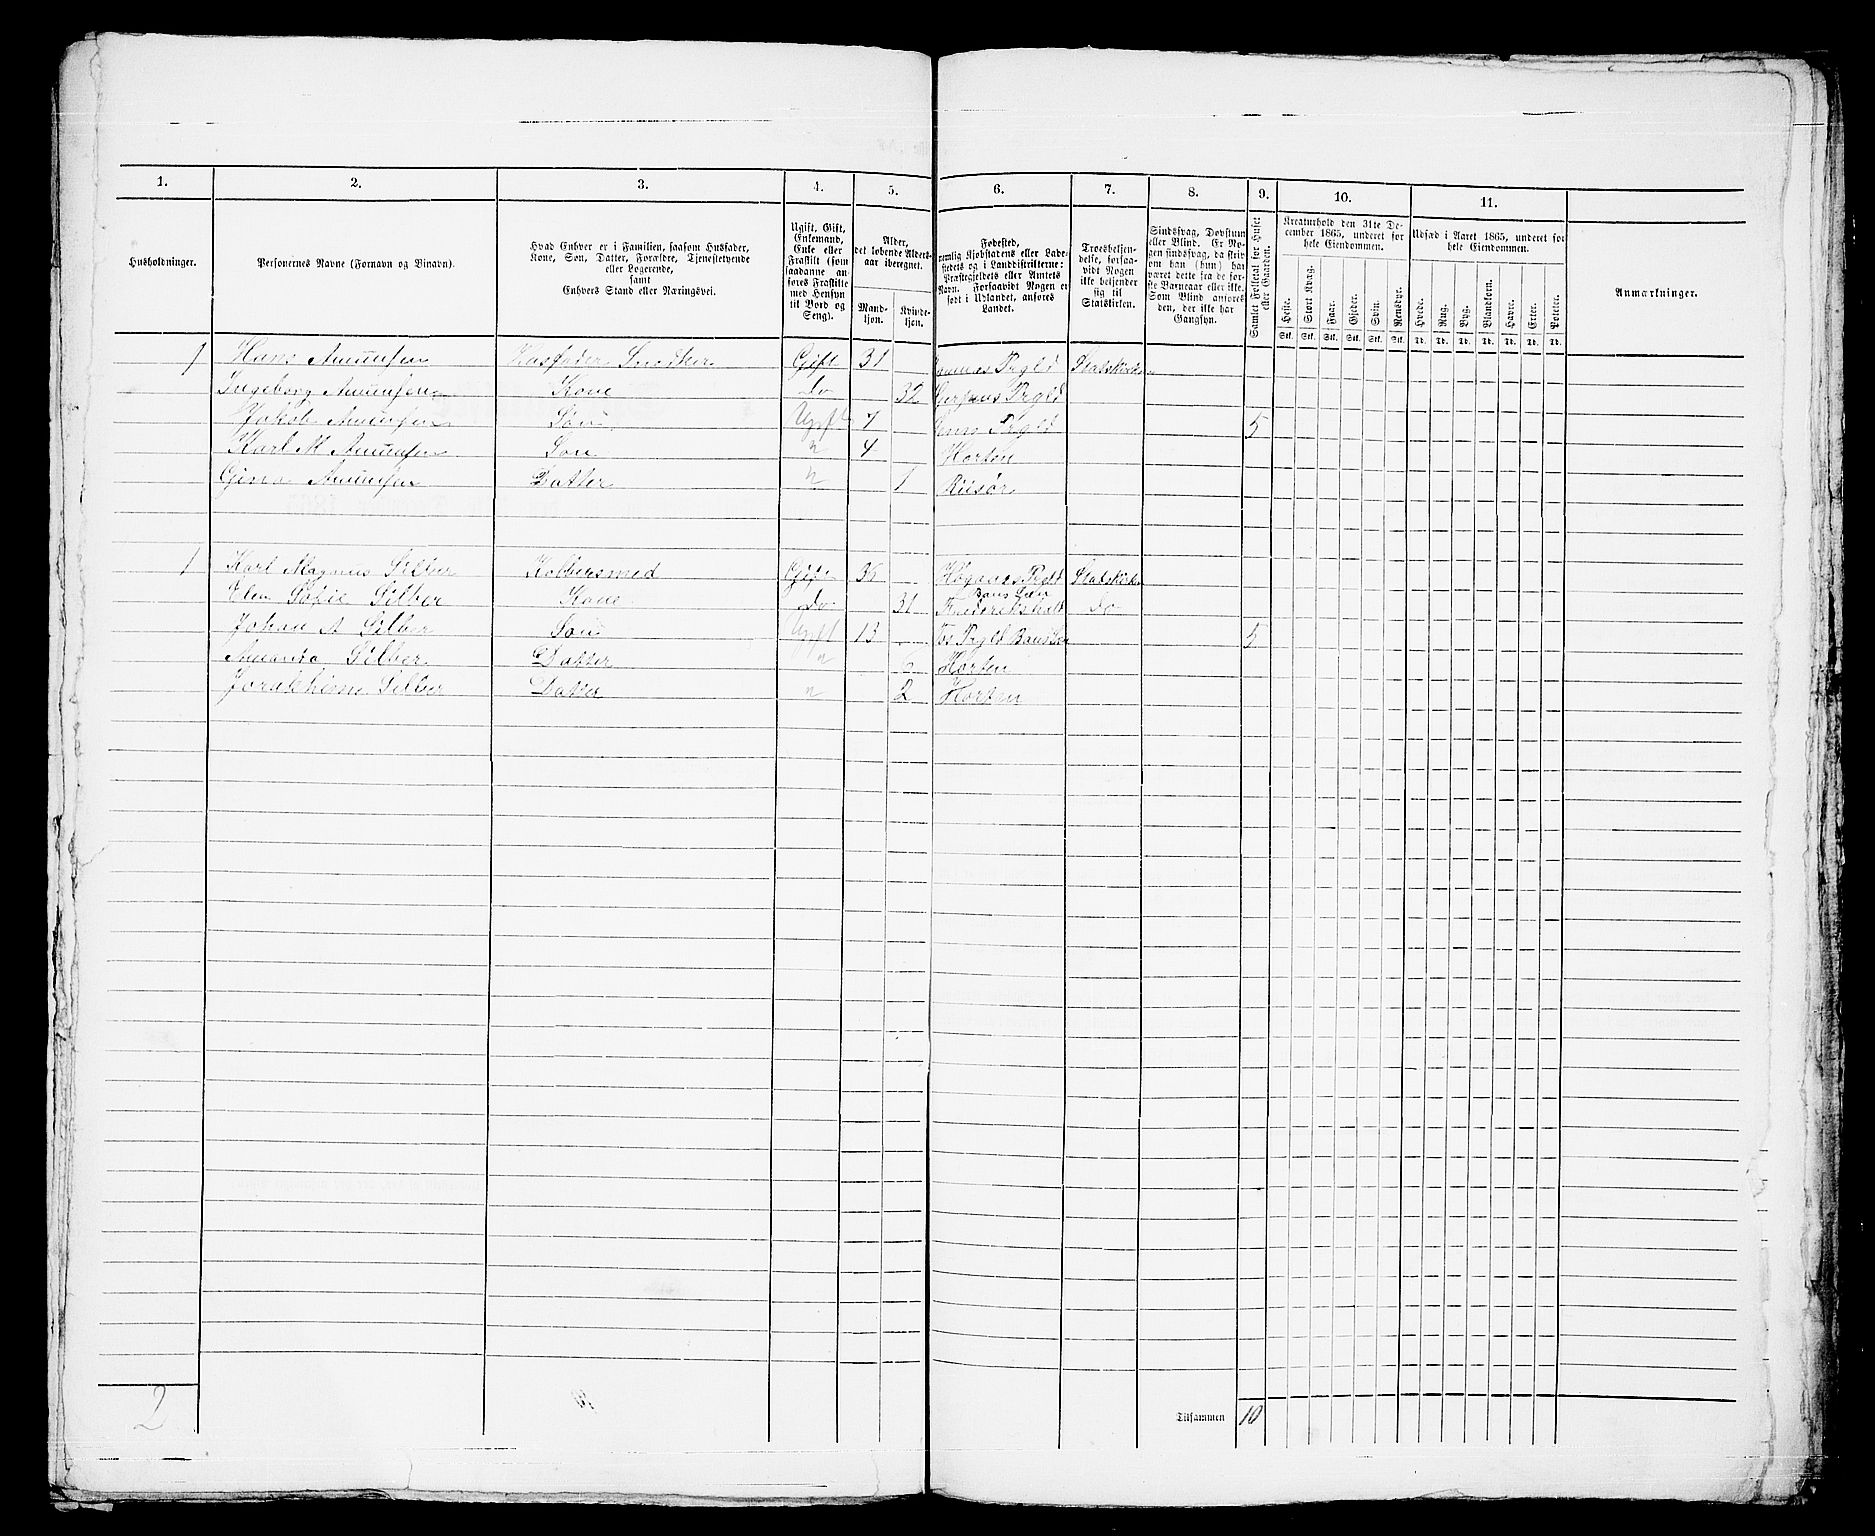 1. 2. 3. 4. 5. 6. 7. 8. 9. 10. 11.
Husholdninger.
Personernes Navne (Fornavn og Binavn).
Hvad Enhver er i Familien, saasom Husfader,
Kone, Søn, Datter, Forældre, Tjenestetyende
eller Logerende,
samt
Enhvers Stand eller Næringsvei.
Ugift, Gift,
Enkemand,
Enke eller
Fraskilt (som
saadanne an-
føres Fraskilte
med Hensyn
til Bord og
Seng).
Alder,
det løbende Alders-
aar iberegnet.
Mand-
kjøn.
Kvinde-
kjøn.
Fødested,
nemlig Kjøbstadens eller Lade-
stedets og i Landdistrikterne:
Præstegjeldets eller Amtets
Navn. Forsaavidt Nogen er
født i Udlandet, anføres
Landet.
Troesbekjen-
delse, forsaa-
vidt Nogen
ikke bekjender
sig til
Statskirken.
Sindssvag, Døvstum
eller Blind. Er No-
gen sindssvag, da skriv
om han (hun) har
været dette fra de før-
ste Barneaar eller ikke.
Som Blind anføres
den, der ikke har
Gangsyn.
Samlet Folketal for Huset
eller Gaarden.
Kreaturhold den 31te De-
cember 1865, underet for
hele Eiendommen.
Heste. Stort Kvæg. Faar. Gjeder. Svin. Rensdyr.
Stk. Stk. Stk. Stk. Stk. Stk.
Udsæd i Aaret 1865, underet for
hele Eiendommen.
Hvede. Rug. Byg. Blandkorn. Havre. Erter. Poteter.
Td. Td. Td. Td. Td. Td. Td.
Anmærkninger.
1 Hans Amunsen Husfader Snedker Gift 31 Prgld Statskirk
Ingeborg Amunsen Kone Do 32 Prgld
Jakob Amunsen Søn Ugift 7 Prgld 5
Karl M Amunsen Søn " 4 Horten
Gina Amunsen Datter " 1 Riisør
1 Karl Magnus Silber Kobbersmed Gift 36 Prgld Statskirk
Elen Sofie Silber Kone Do 31 Frederikshald Do
Johan A Silber Søn Ugift 13 Prgld 5
Amanda Silber Datter " 6 Horten
Silber Datter " 2 Horten
2
Tilsammen 10